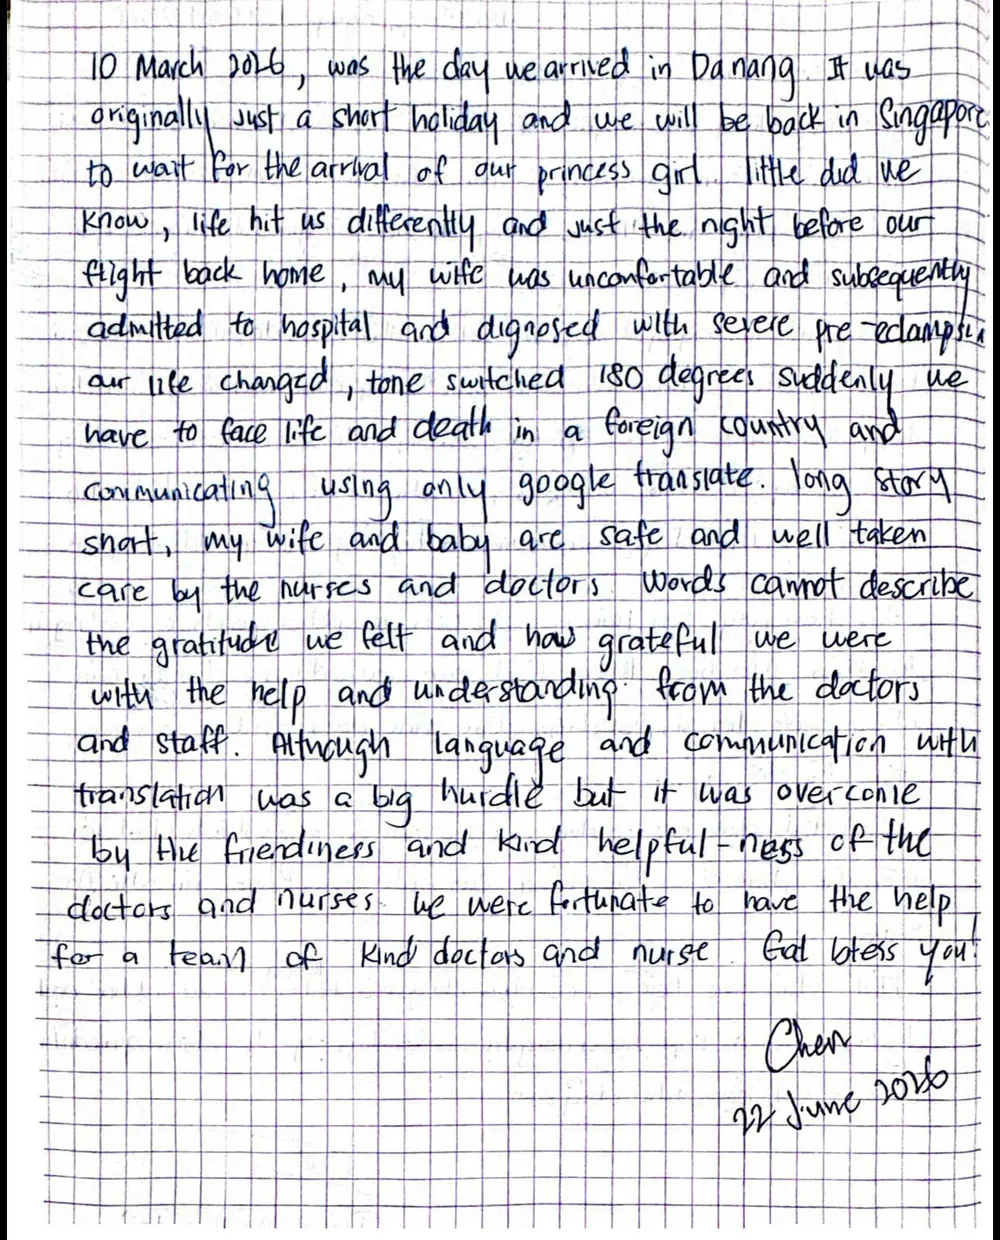 10 March 2026, was the day we arrived in Danang. It was
originally just a short holiday and we will be back in Singapore
to wait for the arrival of our princess girl. little did we
know, life hit us differently and just the night before our
flight back home, my wife was unconfortable and subsequently
admitted to hospital and dignosed with severe pre-eclampsia
our life changed, tone switched 180 degrees suddenly we
have to face life and death in a foreign country and
communicating using only google translate. long story
short, my wife and baby are safe and well taken
care by the nurses and doctors. Words cannot describe
the gratitude we felt and how grateful we were
with the help and understanding from the doctors
and staff. Although language and communication with
translation was a big hurdle but it was overcome
by the friendiness and kind helpful-ness of the
doctors and nurses. We were fortunate to have the help
for a team of kind doctors and nurse. God bless you!
Chen
22 June 2026